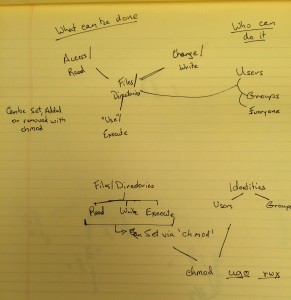 What can be done
Who can
do it
Access/
Read
Change/
Write
Files/
Directories
Users
Groups
Everyone
"Use"/
Execute
Can be Set, Added
or removed with
chmod
Files/Directories
Identities
Read Write Execute
Users
Groups
Set via 'chmod'
chmod ugo rwx